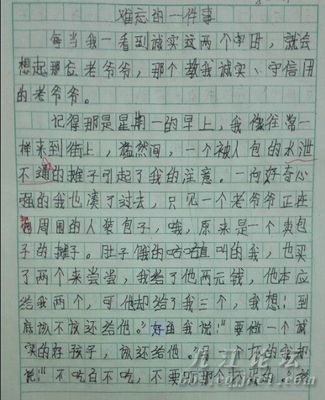 难忘的一件事
每当我一看到诚实这两个字时，就会
想起那位老爷爷，那个教我诚实、守信用
的老爷爷。
记得那是星期一的早上，我像往常一
样来到街上，猛然间，一个被人包的水泄
不通的摊子引起了我的注意。一向好奇心
强的我也凑了过去，只见一个老爷爷正在
给周围的人装包子，哦，原来是一个卖包
子的摊子。肚子饿的咕咕直叫的我，也买
了两个来尝尝，我给了他两元钱，他本应
给我两个，可他却给了我三个，我想：到
底该不该还给他。"好
我说：要做一个诚
实的好孩子，该还给他。"
一个
的我却
说："不吃白不吃，不要
那个